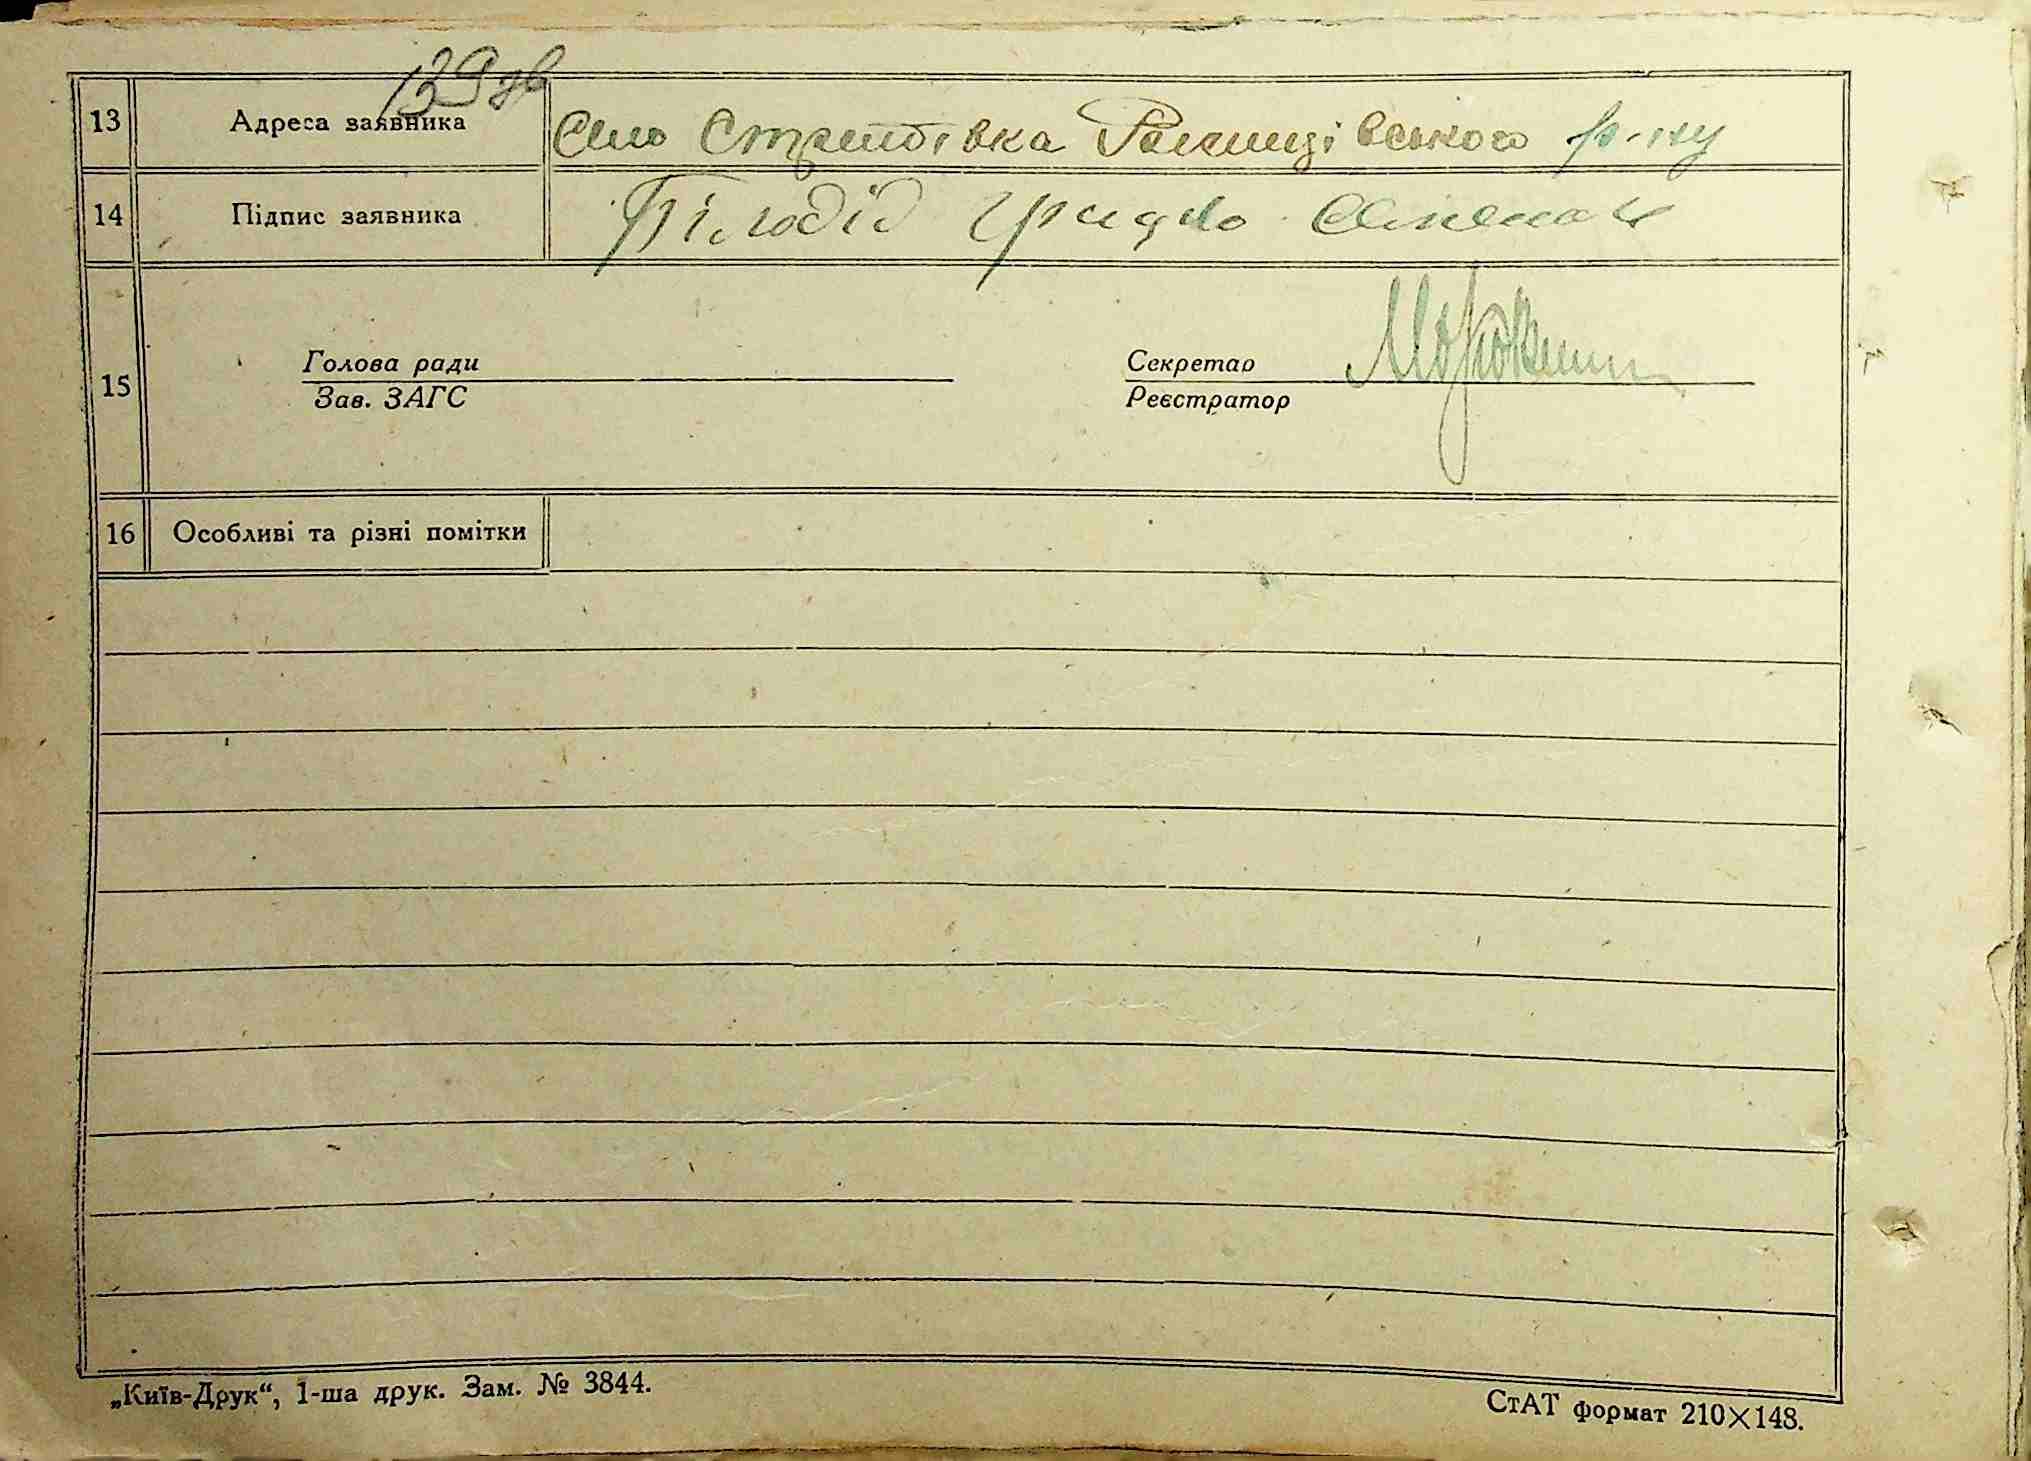 139 зв
13 Адреса заявника Село Стритівка Ржищівського р-ну
14 Підпис заявника Білодід Грицько Семенов
15 Голова ради Секретар
Зав. ЗАГС Реєстратор
16 Особливі та різні помітки
„Київ-Друк“, 1-ша друк. Зам. № 3844.
СтАТ формат 210×148.